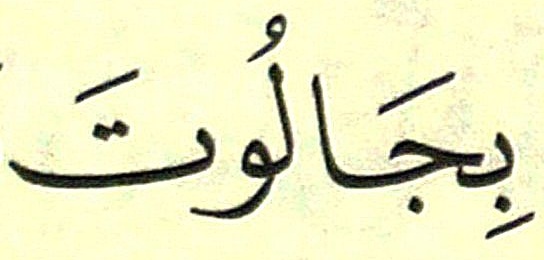 بِجَالُوتَ